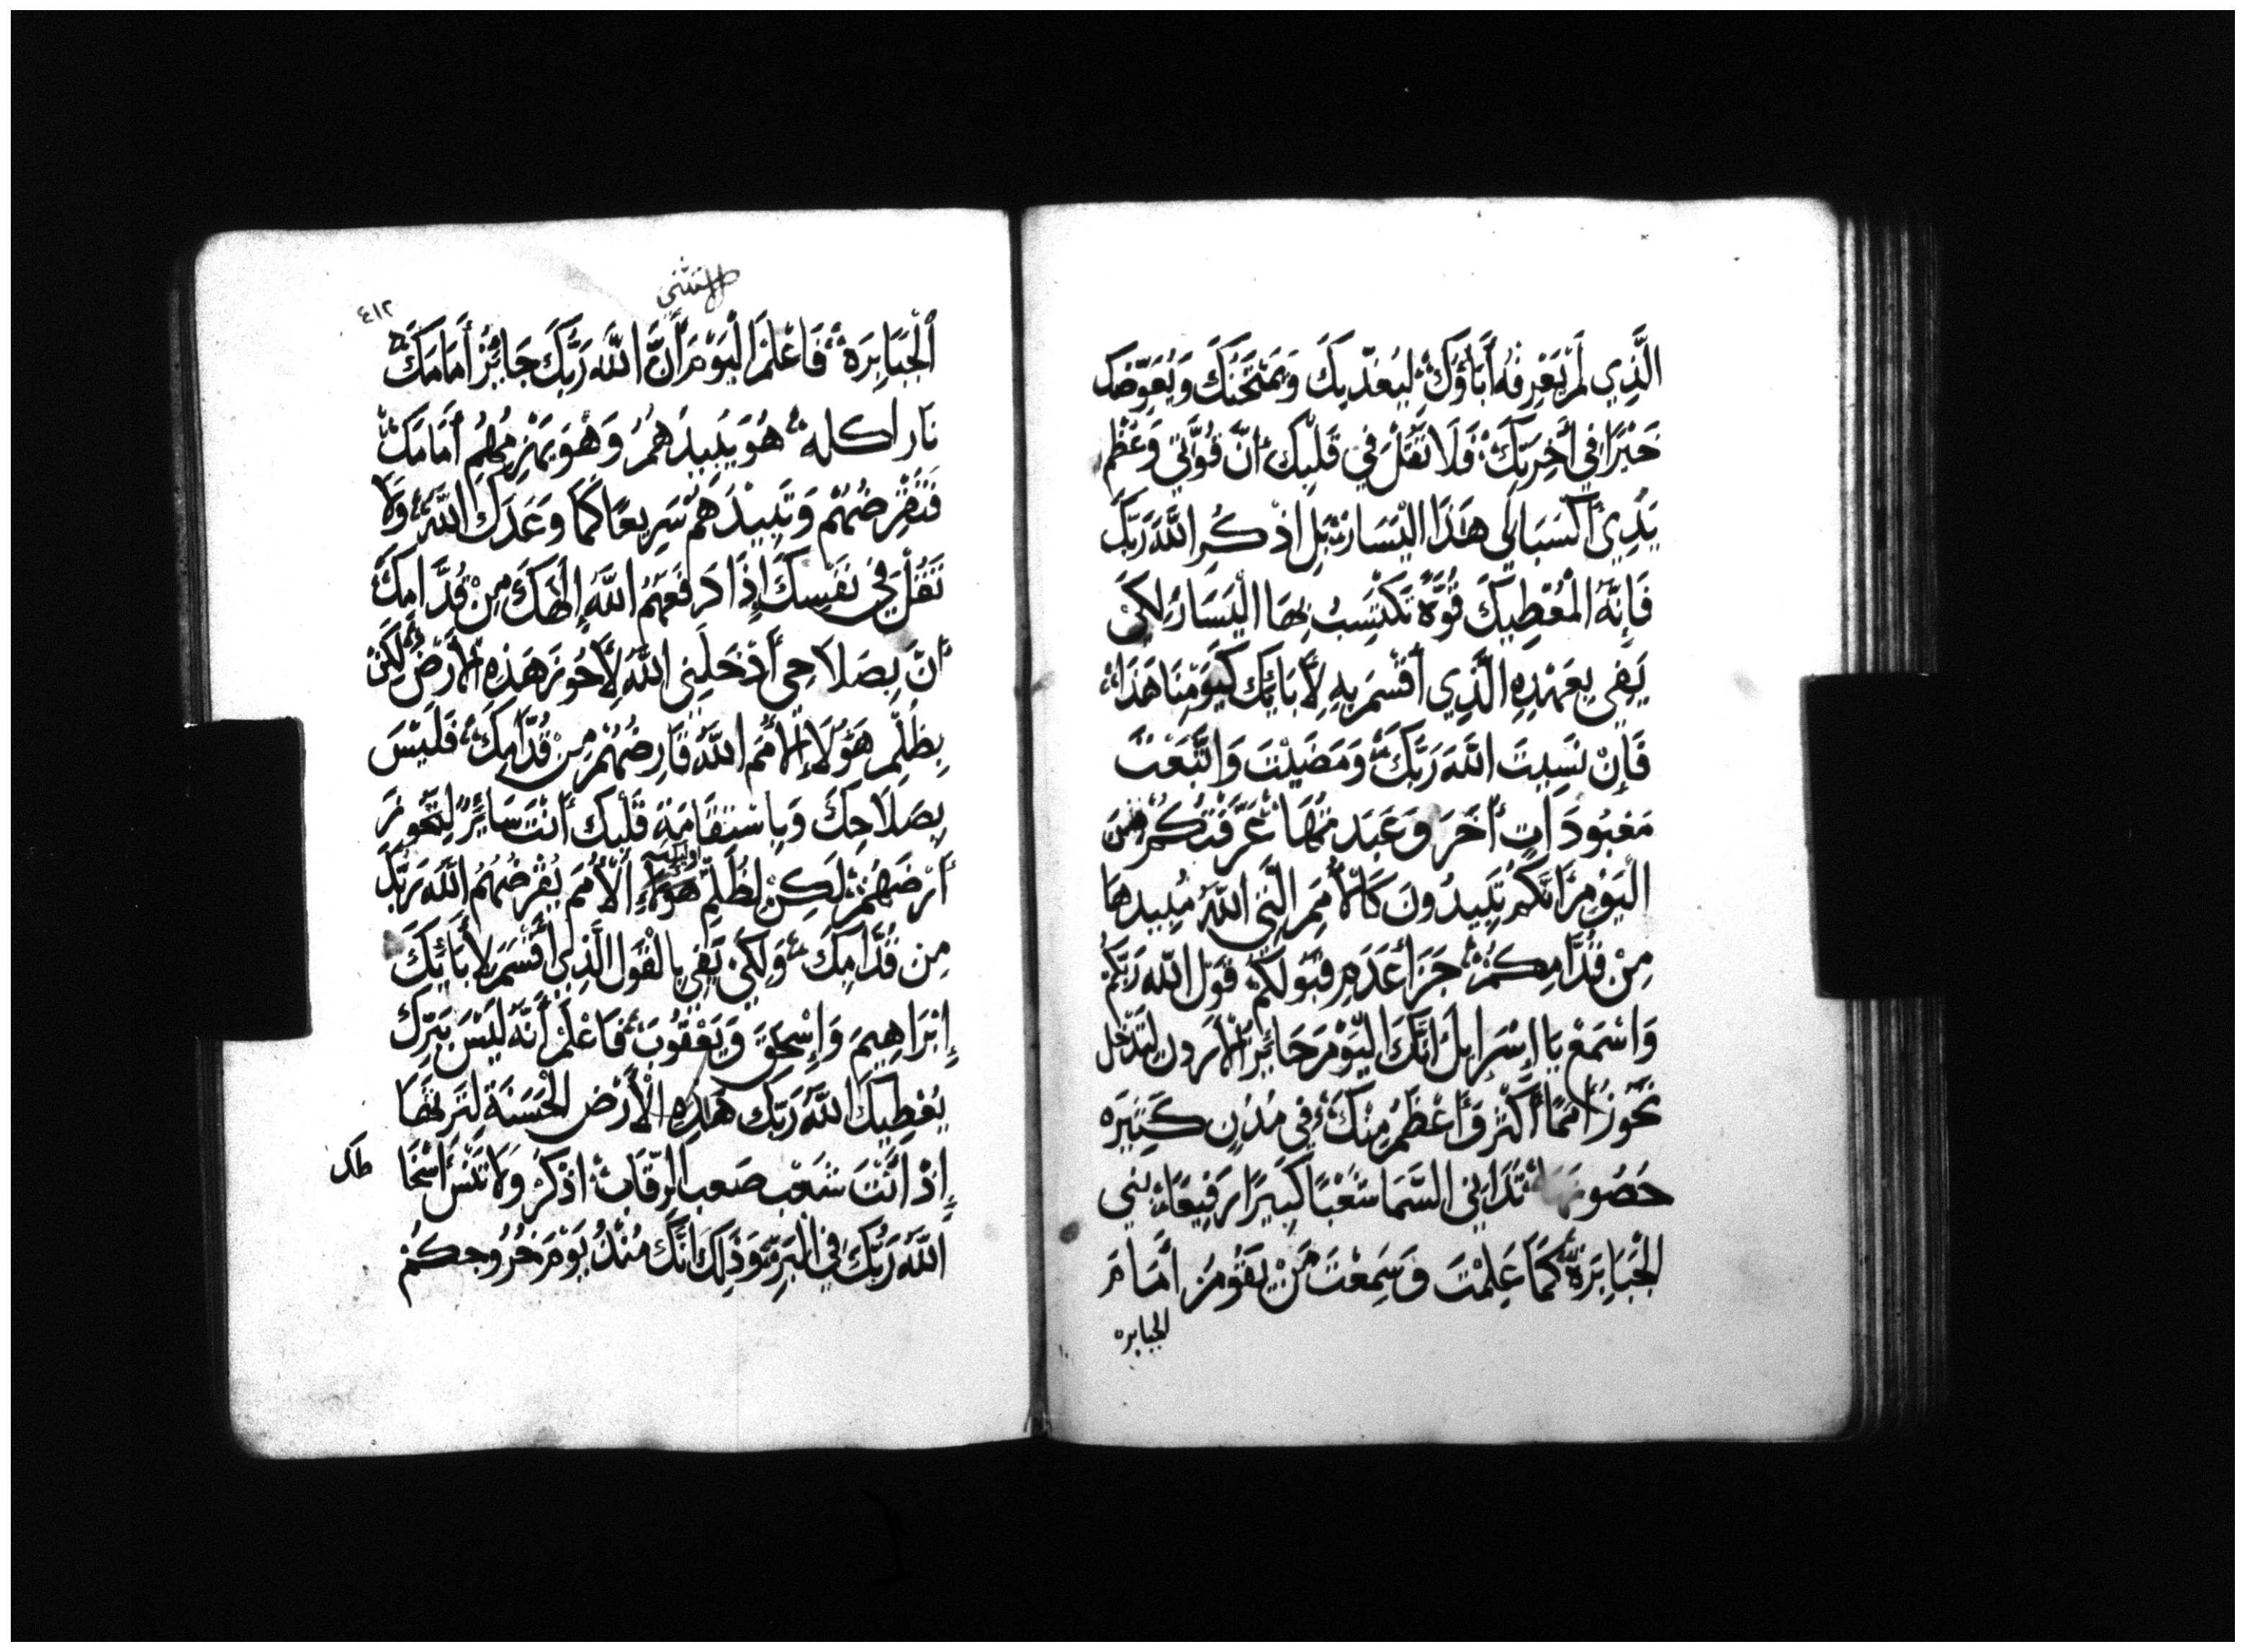 الَّذِي لَمْ يَعْرِفْهُ أَبَاؤُكَ لِيُعَذِّبَكَ وَيَمْتَحِنَكَ وَيُعَوِّضَكَ
خَيْرًا فِي أَخِرَتِكَ فَلَا تَقُلْ فِي قَلْبِكَ أَنَّ قُوَّتِي وَعُظْمَ
يَدِيَّ أَكْسَبَا لِي هَذَا الْيَسَارَ بَلِ اذْكُرِ اللَّهَ رَبَّكَ
فَإِنَّهُ الْمُعْطِيكَ قُوَّةً تَكْتَسِبُ بِهَا الْيَسَارَ لِكَيْ
يَفِي بِعَهْدِهِ الَّذِي أَقْسَمَ بِهِ لِأَبَائِكَ كَيَوْمِنَا هَذَا
فَإِنْ نَسِيتَ اللَّهَ رَبَّكَ وَمَضَيْتَ وَاتَّبَعْتَ
مَعْبُودَاتٍ أُخَرَ وَعَبَدْتَهَا عَرَّفْتُكُمْ مِنَ
الْيَوْمِ إِنَّكُمْ تَبِيدُونَ كَالْأُمَمِ الَّتِي اللَّهُ مُبِيدُهَا
مِنْ قُدَّامِكُمْ جَزَا عَدَمِ قَبُولِكُمْ قَوْلَ اللَّهِ رَبِّكُمْ
وَاسْمَعْ يَا إِسْرَايِلَ إِنَّكَ الْيَوْمَ جَائِزُ الْأُرْدُنِّ لِتَدْخُلَ
تَحُوزُ أُمَمًا أَكْثَرَ وَأَعْظَمَ مِنْكَ فِي مُدُنٍ كَبِيرَةٍ
حُصُونُهَا تُدَانِي السَّمَا شَعْبًا كَبِيرًا رَفِيعًا بَنِي
الْجَبَابِرَةِ كَمَا عَلِمْتَ وَسَمِعْتَ مَنْ يَقُومُ أَمَامَ
الجبابره
٤١٢
الْجَبَابِرَةِ فَاعْلَمِ الْيَوْمَ أَنَّ اللَّهَ رَبَّكَ جَائِزٌ أَمَامَكَ
نَار اكله هُوَ يُبِيدُهُمْ وَهُوَ يَهْزِمُهُمْ أَمَامَكَ
فَتَقْرِضُهُمْ وَتُبِيدُهُمْ سَرِيعًا كَمَا وَعَدَكَ اللَّهُ وَلَا
تَقُلْ فِي نَفْسِكَ إِذَا دَفَعَهُمُ اللَّهُ إِلَهُكَ مِنْ قُدَّامِكَ
أَنَّ بِصَلَاحِي أَدْخَلَنِي اللَّهُ لِأَحُوزَ هَذِهِ الْأَرْضَ لَكِنْ
بِظُلْمِ هَؤُلَاءِ الْأُمَمِ اللَّهُ قَارِضُهُمْ مِنْ قُدَّامِكَ فَلَيْسَ
بِصَلَاحِكَ وَبِاسْتِقَامَةِ قَلْبِكَ أَنْتَ سَائِرٌ لِتَحُوزَ
أَرْضَهُمْ لَكِنْ لِظُلْمِ أوليك الْأُمَمِ يَقْرِضُهُمُ اللَّهُ رَبُّكَ
مِن قُدَّامِكَ وَلِكَيْ يَفِي بِالْقَوْلِ الَّذِي أَقْسَمَ لِأَبَائِكَ
إِبْرَاهِيمَ وَإِسْحَقَ وَيَعْقُوبَ فَاعْلَمْ أَنَّهُ لَيْسَ بِبِرِّكَ
يُعْطِيكَ اللَّهُ رَبُّكَ هَذِهِ الْأَرْضَ الْحَسَنَةَ لِتَرِثَهَا
إِذْ أَنْتَ شَعْب صَعب الرِّقَابِ اذْكُرْ وَلَا تَنْسَ إِسْخَا
اللَّهَ رَبَّكَ فِي الْبَرِّيَّةِ وَذَلِكَ أَنَّكَ مُنْذُ يَوْمِ خُرُوجِكُمْ